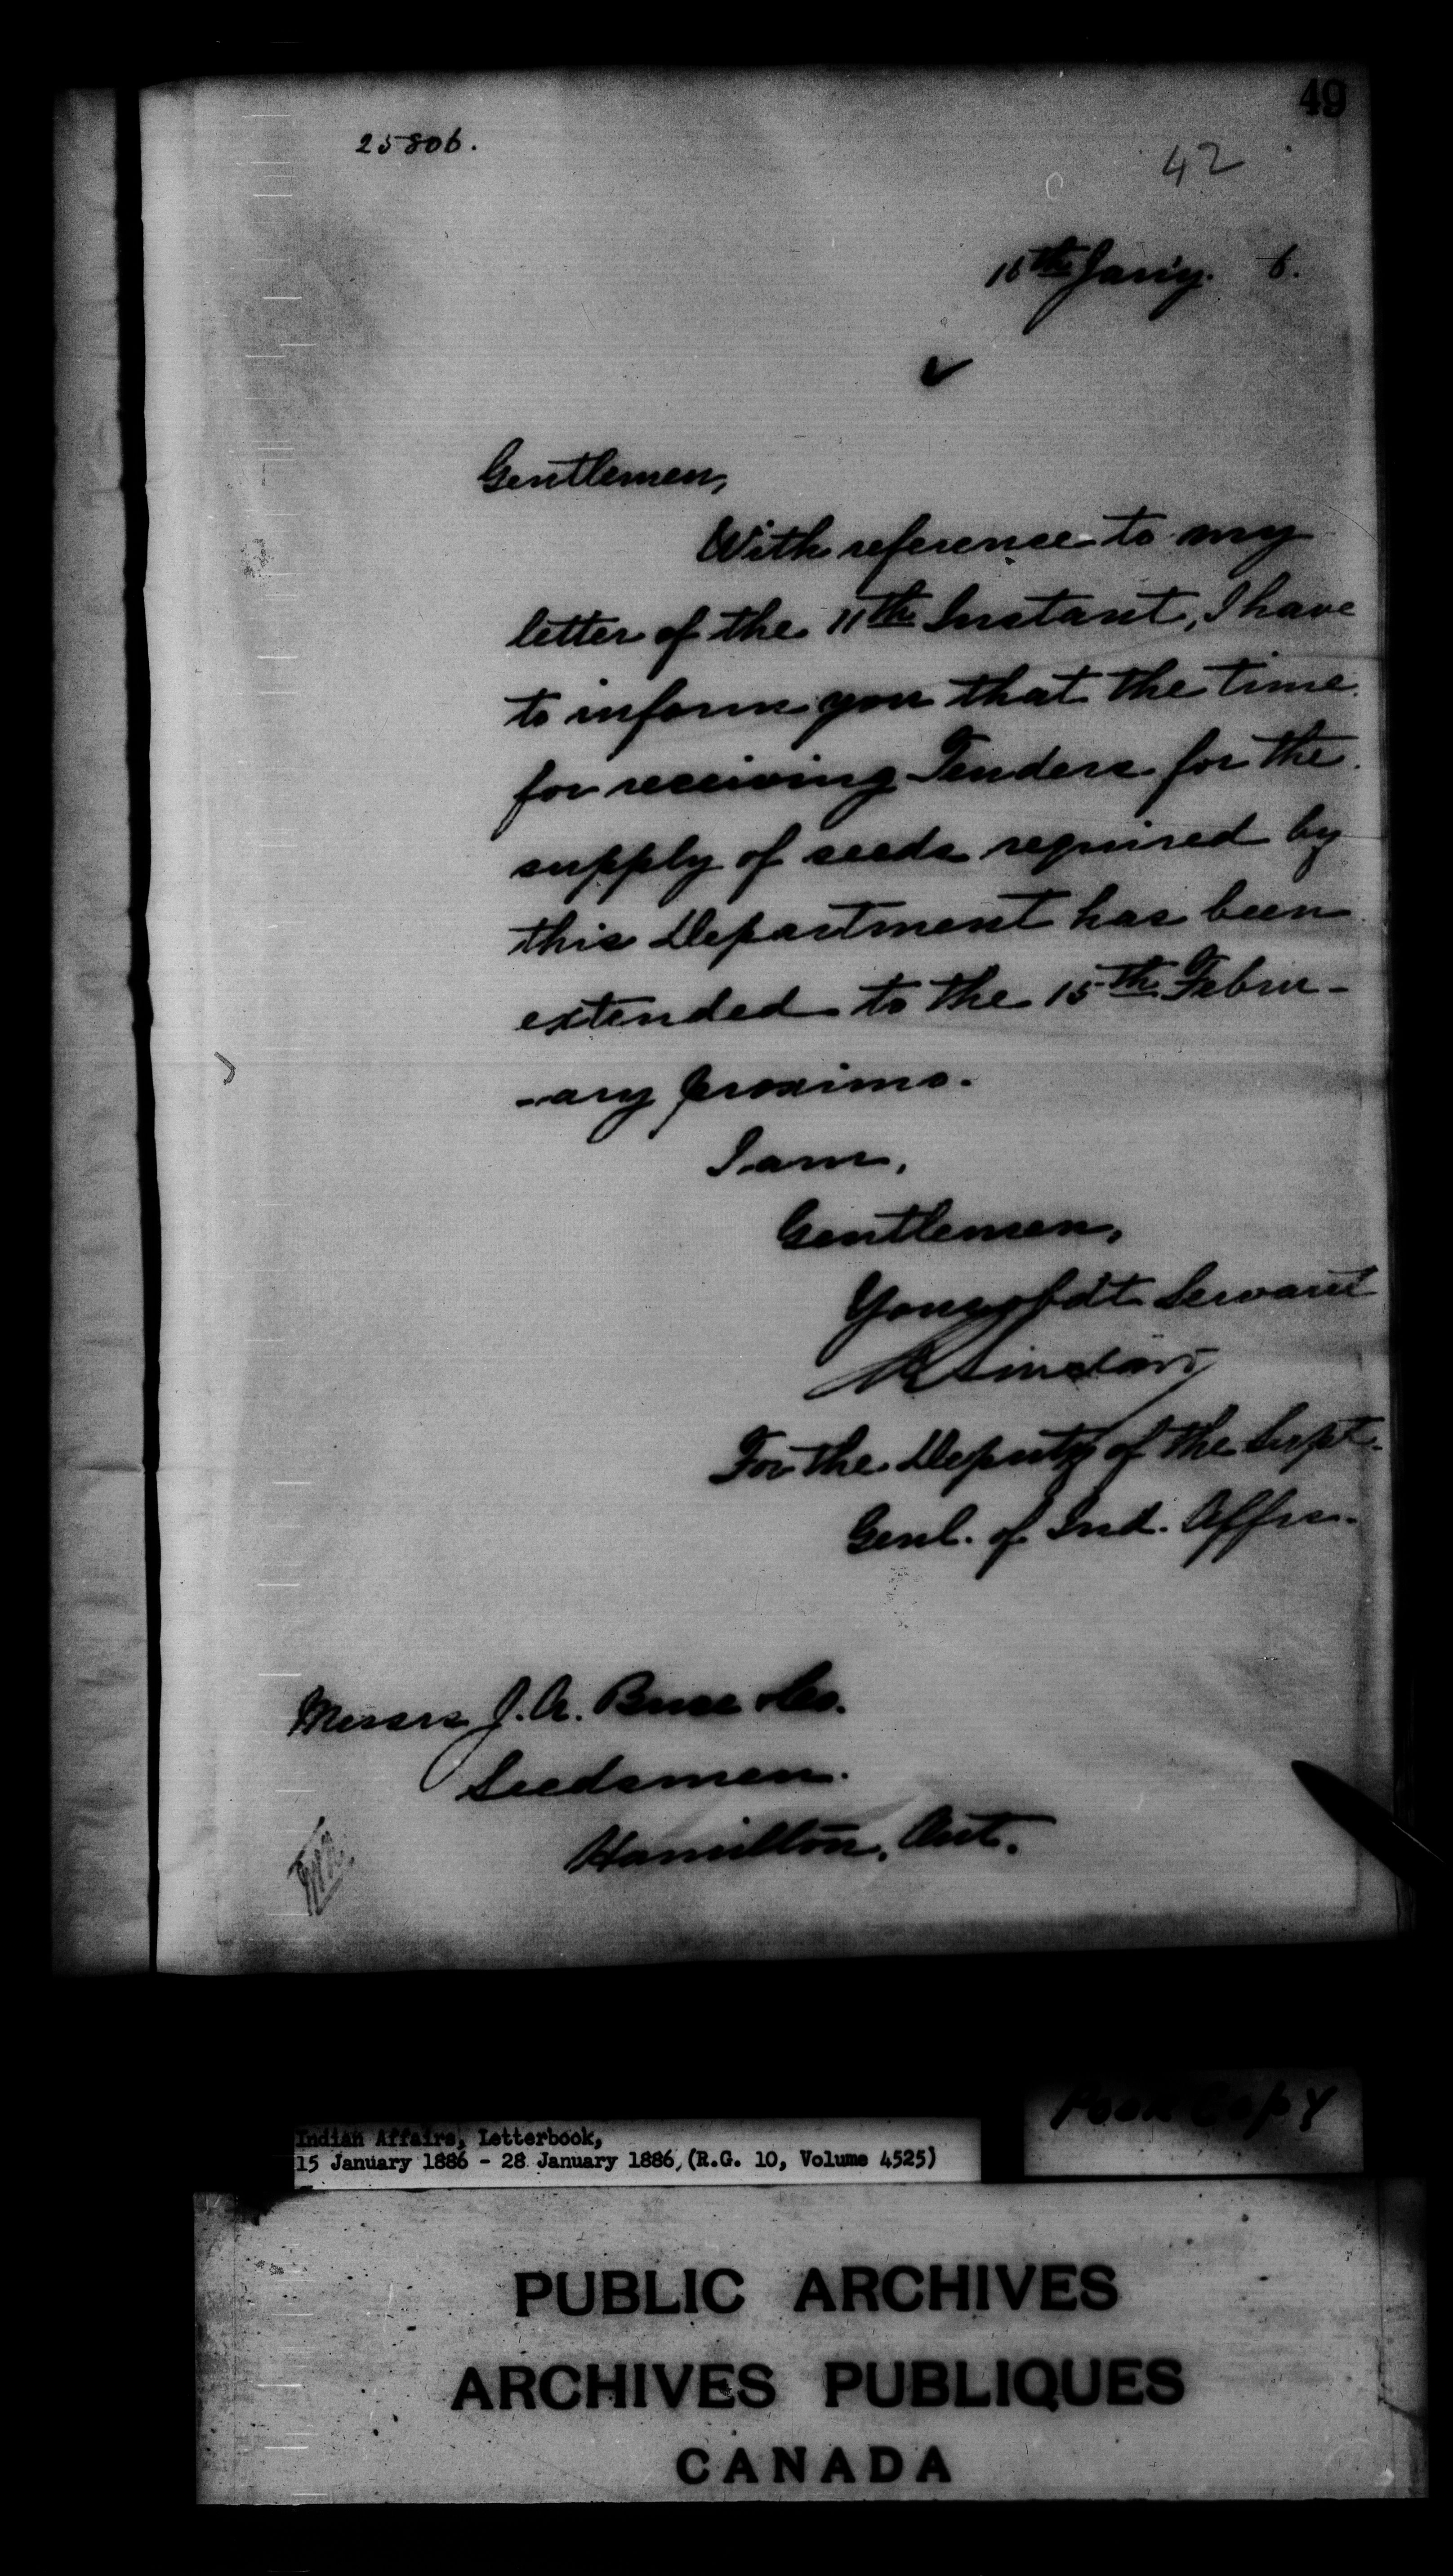 49
25806.
42
16th Jan'y. 6.
Gentlemen,
With reference to my
letter of the 11th Instant, I have
to inform you that the time
for receiving Tenders for the
supply of seeds required by
this Department has been
extended to the 15th Febru-
-ary proximo.
I am,
Gentlemen,
Your obdt Servant
R Sinclair
For the Deputy of the Supt.
Genl. of Ind. Affrs.
Messrs J. A. Bruce & Co.
Seedsmen.
Hamilton, Ont.
Poor Copy
Indian Affairs, Letterbook,
15 January 1886 - 28 January 1886, (R.G. 10, Volume 4525)
PUBLIC ARCHIVES
ARCHIVES PUBLIQUES
CANADA